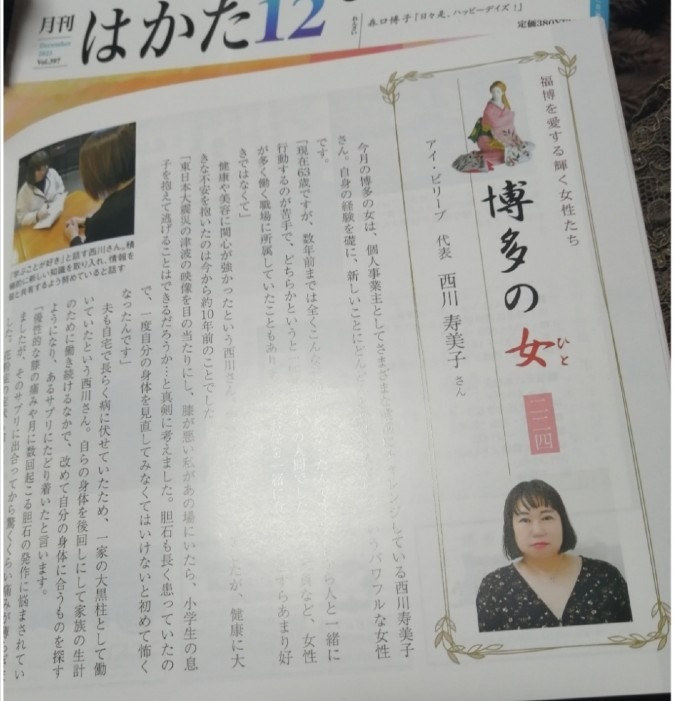 月刊
はかた12
December
Vol.397
森口博子『日々是、ハッピーデイズ!』
定価380
福博を愛する輝く女性たち
博多の女
ひと
二二四
アイ・ビリーブ 代表 西川 寿美子 さん
今月の博多の女は、個人事業主としてさまざまな
ンジしている西川寿美子
さん。自身の経験を礎に、新しいことにどん
パワフルな女性
です。
「現在63歳ですが、数年前までは全くこんな
ら人と一緒に
行動するのが苦手で、どちらかというと
員など、女性
が多く働く職場に所属していたこともあり
すらあまり好
きではなくて」
健康や美容に関心が強かったという西川さん
たが、健康に大
きな不安を抱いたのは今から約10年前のことでした
「東日本大震災の津波の映像を目の当たりにし、膝が悪い私があの場にいたら、小学生の息
子を抱えて逃げることはできるだろうか…と真剣に考えました。胆石も長く患っていたの
で、一度自分の身体を見直してみなくてはいけないと初めて怖く
なったんです」
夫も自宅で長らく病に伏せていたため、一家の大黒柱として働
いていたという西川さん。自らの身体を後回しにして家族の生計
のために働き続けるなかで、改めて自分の身体に合うものを探す
ようになり、あるサプリにたどり着いたと言います。
「慢性的な膝の痛みや月に数回起こる胆石の発作に悩まされてい
ましたが、そのサプリに出合ってから驚くくらい痛みが
した。
「学ぶことが好き」と話す西川さん。積
極的に新しい知識を取り入れ、情報を
と共有するよう努めていると話す